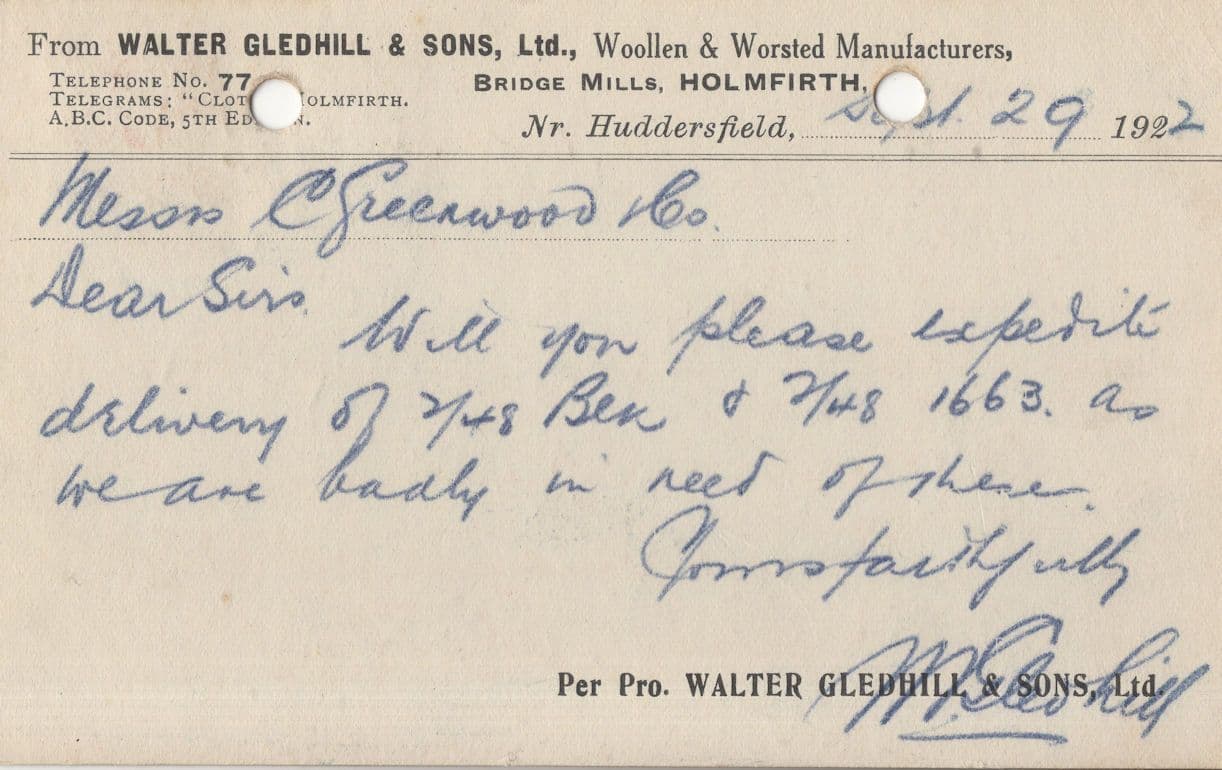 From WALTER GLEDHILL & SONS, Ltd., Woollen & Worsted Manufacturers,
TELEPHONE No. 77 BRIDGE MILLS, HOLMFIRTH,
TELEGRAMS: "CLOT OLMFIRTH.
A.B.C. CODE, 5TH ED N.
Nr. Huddersfield, Sept. 29 1922
Messrs C Greenwood & Co.
Dear Sirs.
Will you please expedite
delivery of 2/48 Bek & 2/48 1663. as
we are badly in need of these.
Yours faithfully
Per Pro. WALTER GLEDHILL & SONS, Ltd.
W. Gledhill